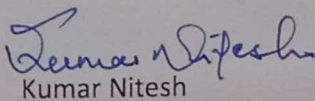 Kumar Nitesh
Kumar Nitesh